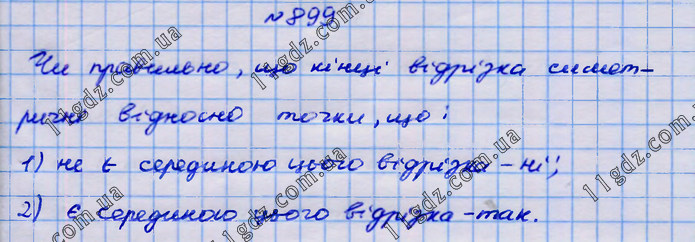 №899
Чи правильно, що кінці відрізка симет-
ричні відносно точки, що:
1) не є серединою цього відрізка - ні;
2) є серединою цього відрізка - так.
11gdz.com.ua
11gdz.com.ua
11gdz.com.ua
11gdz.com.ua
11gdz.com.ua
11gdz.com.ua